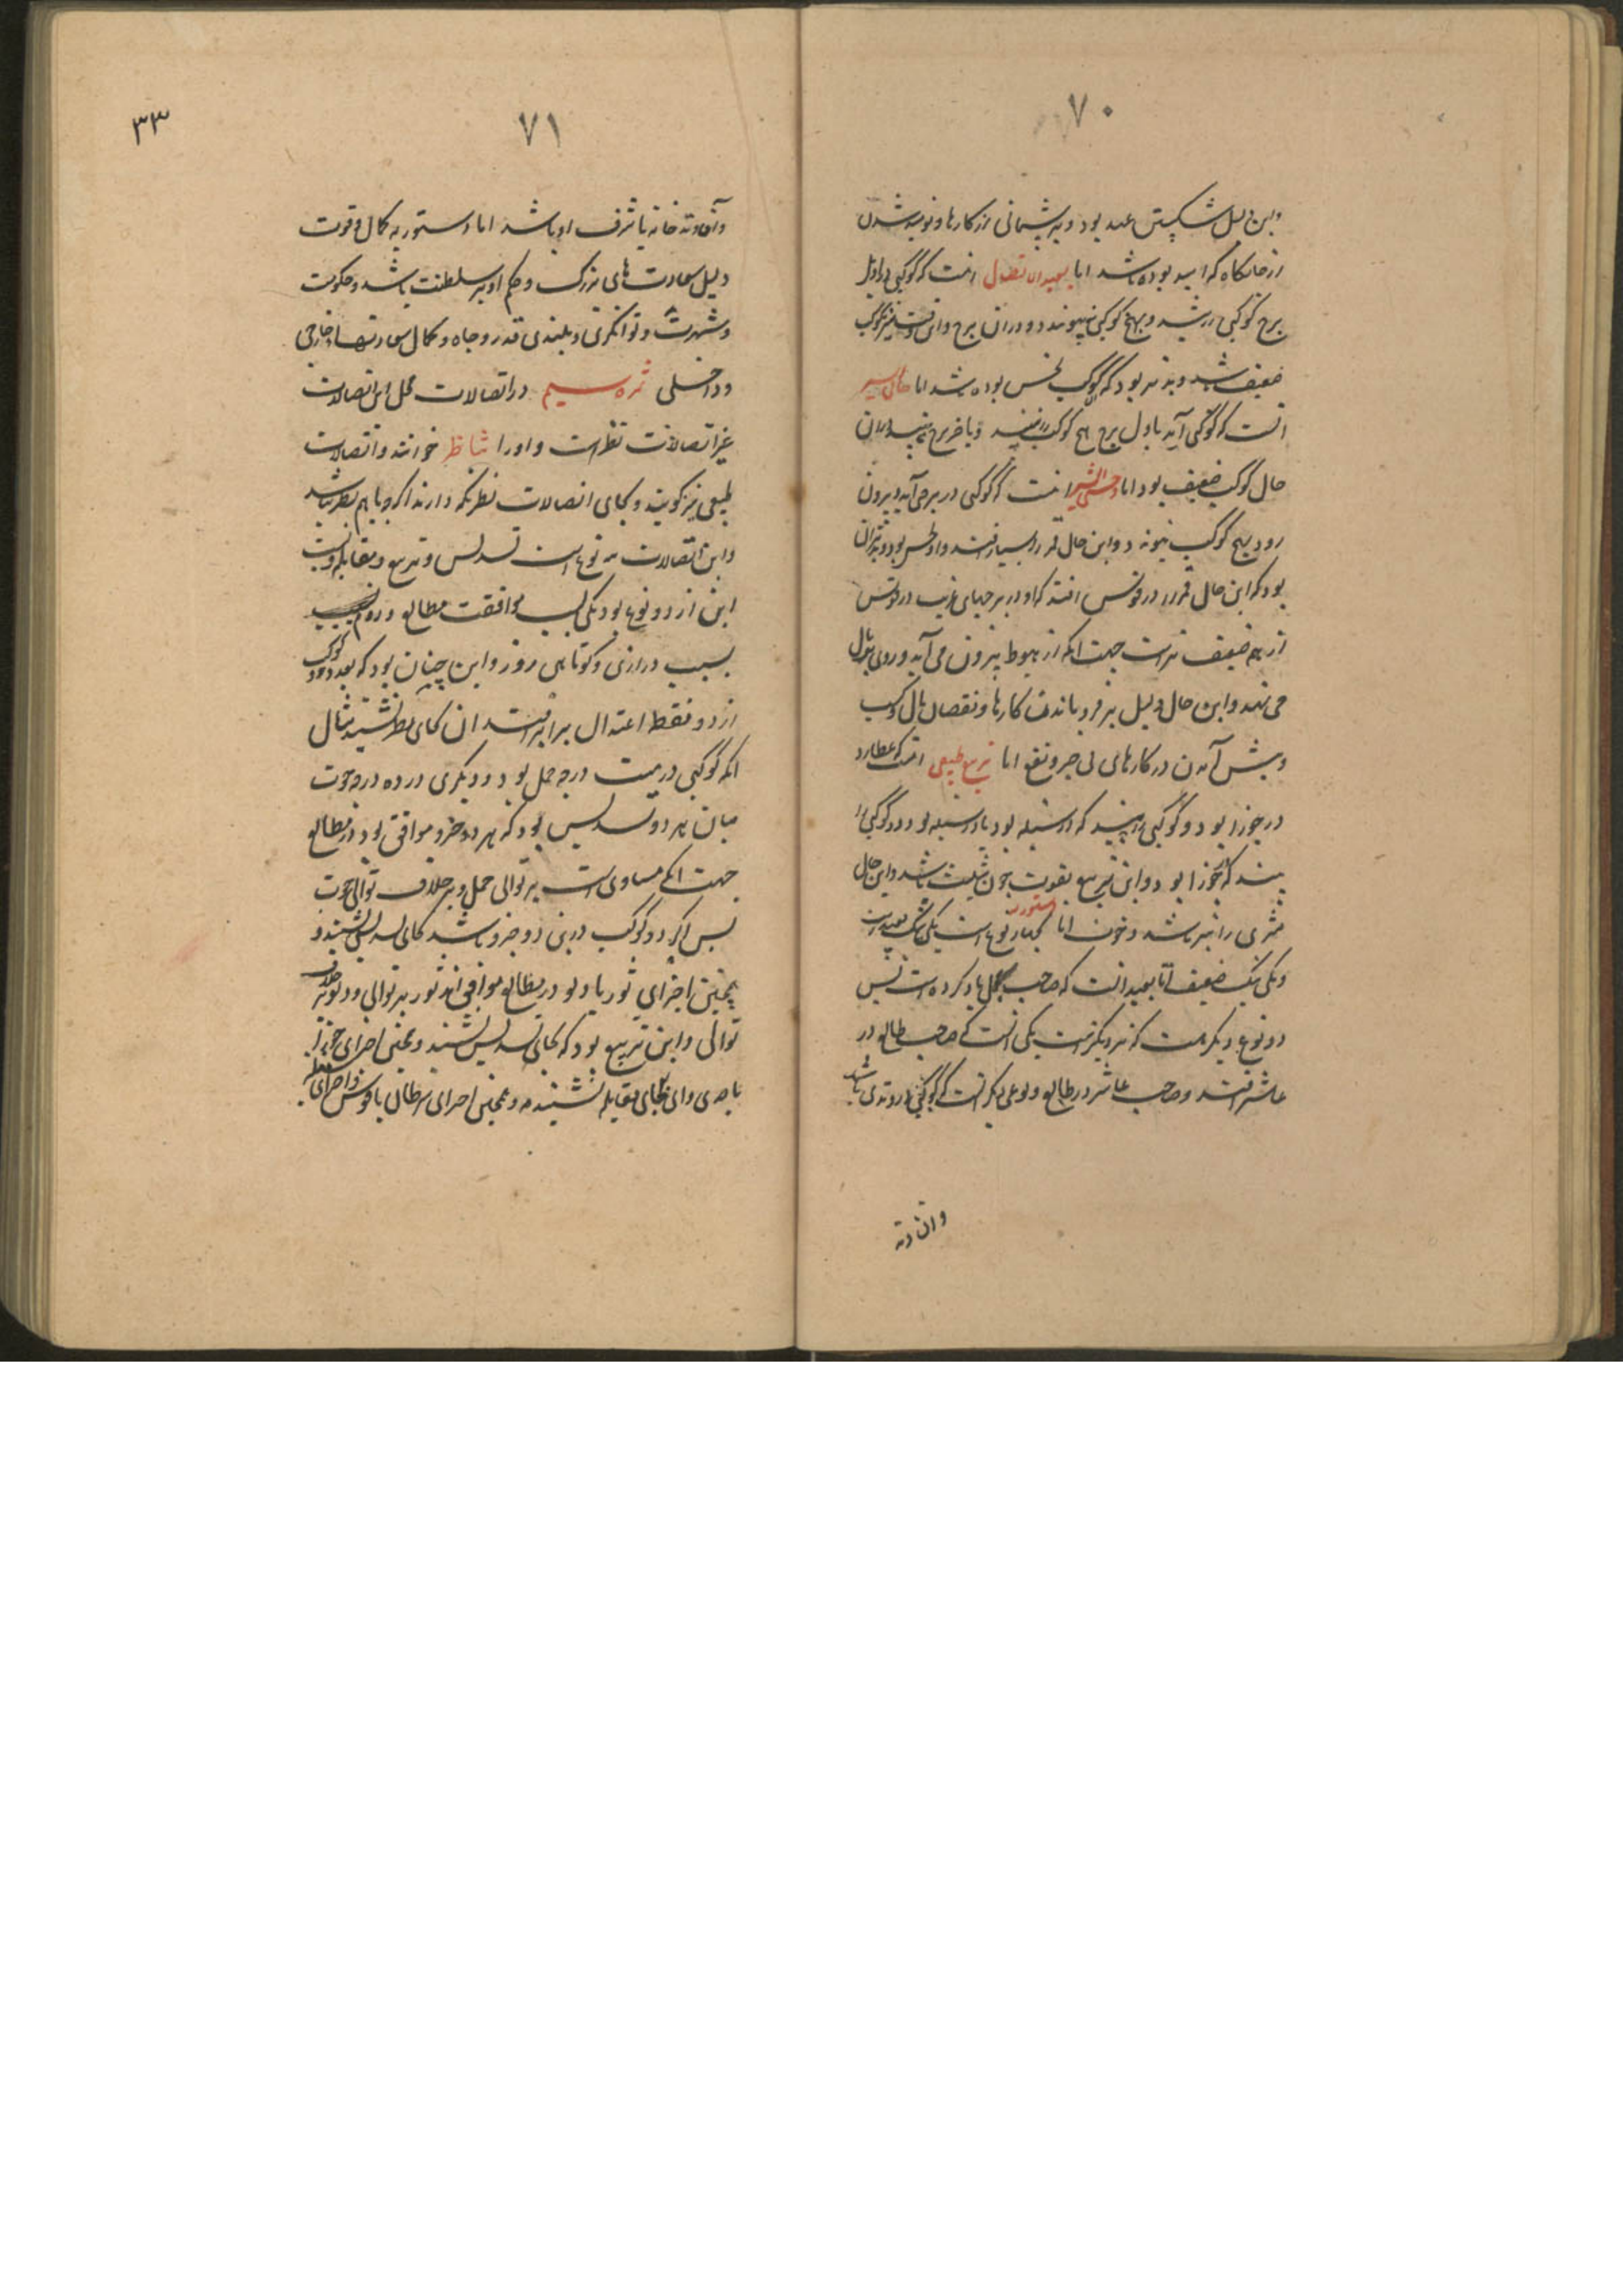 ۷۰
واین دلیل شکستن عهد بود و پشیمانی از کارها و نومید شدن
از جایگاه که امید بوده باشد اما بعید الاتصال انست که کوکبی در اول
برج کوکبی و بهیچ کوکبی نپیوندد در ان برج و این وقت نیز کوکب
ضعیف باشد و بدتر بود که کوکب نحس بوده باشد اما خالی السیر
انست که کوکبی آید باول برج هیچ کوکب را نبیند و تا اخر برج
حال کوکب ضعیف بود اما وحشی السیر انست که کوکبی در برجی آید و بیرون
رود بهیچ کوکب نپیوندد و این حال قمر را بسیار افتد و او نحس بود و بدتر ان
بود که این حال قمر را در قوس افتد که او در برجهای غریب در قوس
از همه ضعیف تر است جهت انکه از هبوط بیرون می آید و روی
می نهد و این حال دلیل بر فروماندن کارها و نقصان مال و کسب
و پیش آمدن در کارهای بی خیر و نفع اما تربیع طبیعی انست که عطارد
در جوزا بود و کوکبی را بیند که در سنبله بود یا در سنبله بود و کوکبی را
بیند که بجوزا بود و این تربیع بقوت چون تثلیث باشد و این حال
مشتری را نیز باشد و اما دستوریت بچهار نوع است یکی نیک بعید است
و یکی نیک ضعیف اما بعید انست که صاحب مجمل یاد کرده است پس
دو نوع دیگر هست که نزدیکتر است یکی انست که صاحب طالع در
عاشر افتد و صاحب عاشر در طالع و نوعی دیگر انست که کوکبی در وتدی باشد
وان وتد
۷۱
۳۳
وآن وتد خانه یا شرف او باشد اما دستوریه کمال و قوت
دلیل سعادت های بزرگ و حکم او بر سلطنت باشد و حکومت
و شهرت و توانگری و بلندی قدر و جاه و کمال سعادتها خارجی
و داخلی ثمره سیم در اتصالات محل این اتصالات
غیر اتصالات نظر است و او را تناظر خوانند و اتصالات
طبیعی نیز گویند و بجای اتصالات نظر نگه دارند اگر چه با هم نظر نباشد
و این اتصالات سه نوع است تسدیس و تربیع و مقابله و نسبت
این از دو نوع بود یکی بسبب موافقت مطالع و دوم
بسبب درازی و کوتاهی روز و این چنان بود که بعد دو کوکب
از دو نقطه اعتدال برابر افتد ان بجای نظر نشیند مثال
انکه کوکبی در بیست درجه حمل بود و دیگری در ده درجه حوت
میان هر دو تسدیس بود که هر دو جزو موافق بود در مطالع
جهت انکه مساوی است بر توالی حمل و بر خلاف توالی حوت
پس اگر دو کوکب درین دو جزو باشد بجای تسدیس نشیند و
همچنین اجزای ثور با دلو در مطالع موافق اند ثور بر توالی و دلو بر خلاف
توالی و این تربیع بود که بجای تسدیس نشیند و همچنین اجزای جوزا
با جدی و ان بجای مقابله نشیند و همچنین اجزای سرطان با قوس و اجزای سنبله